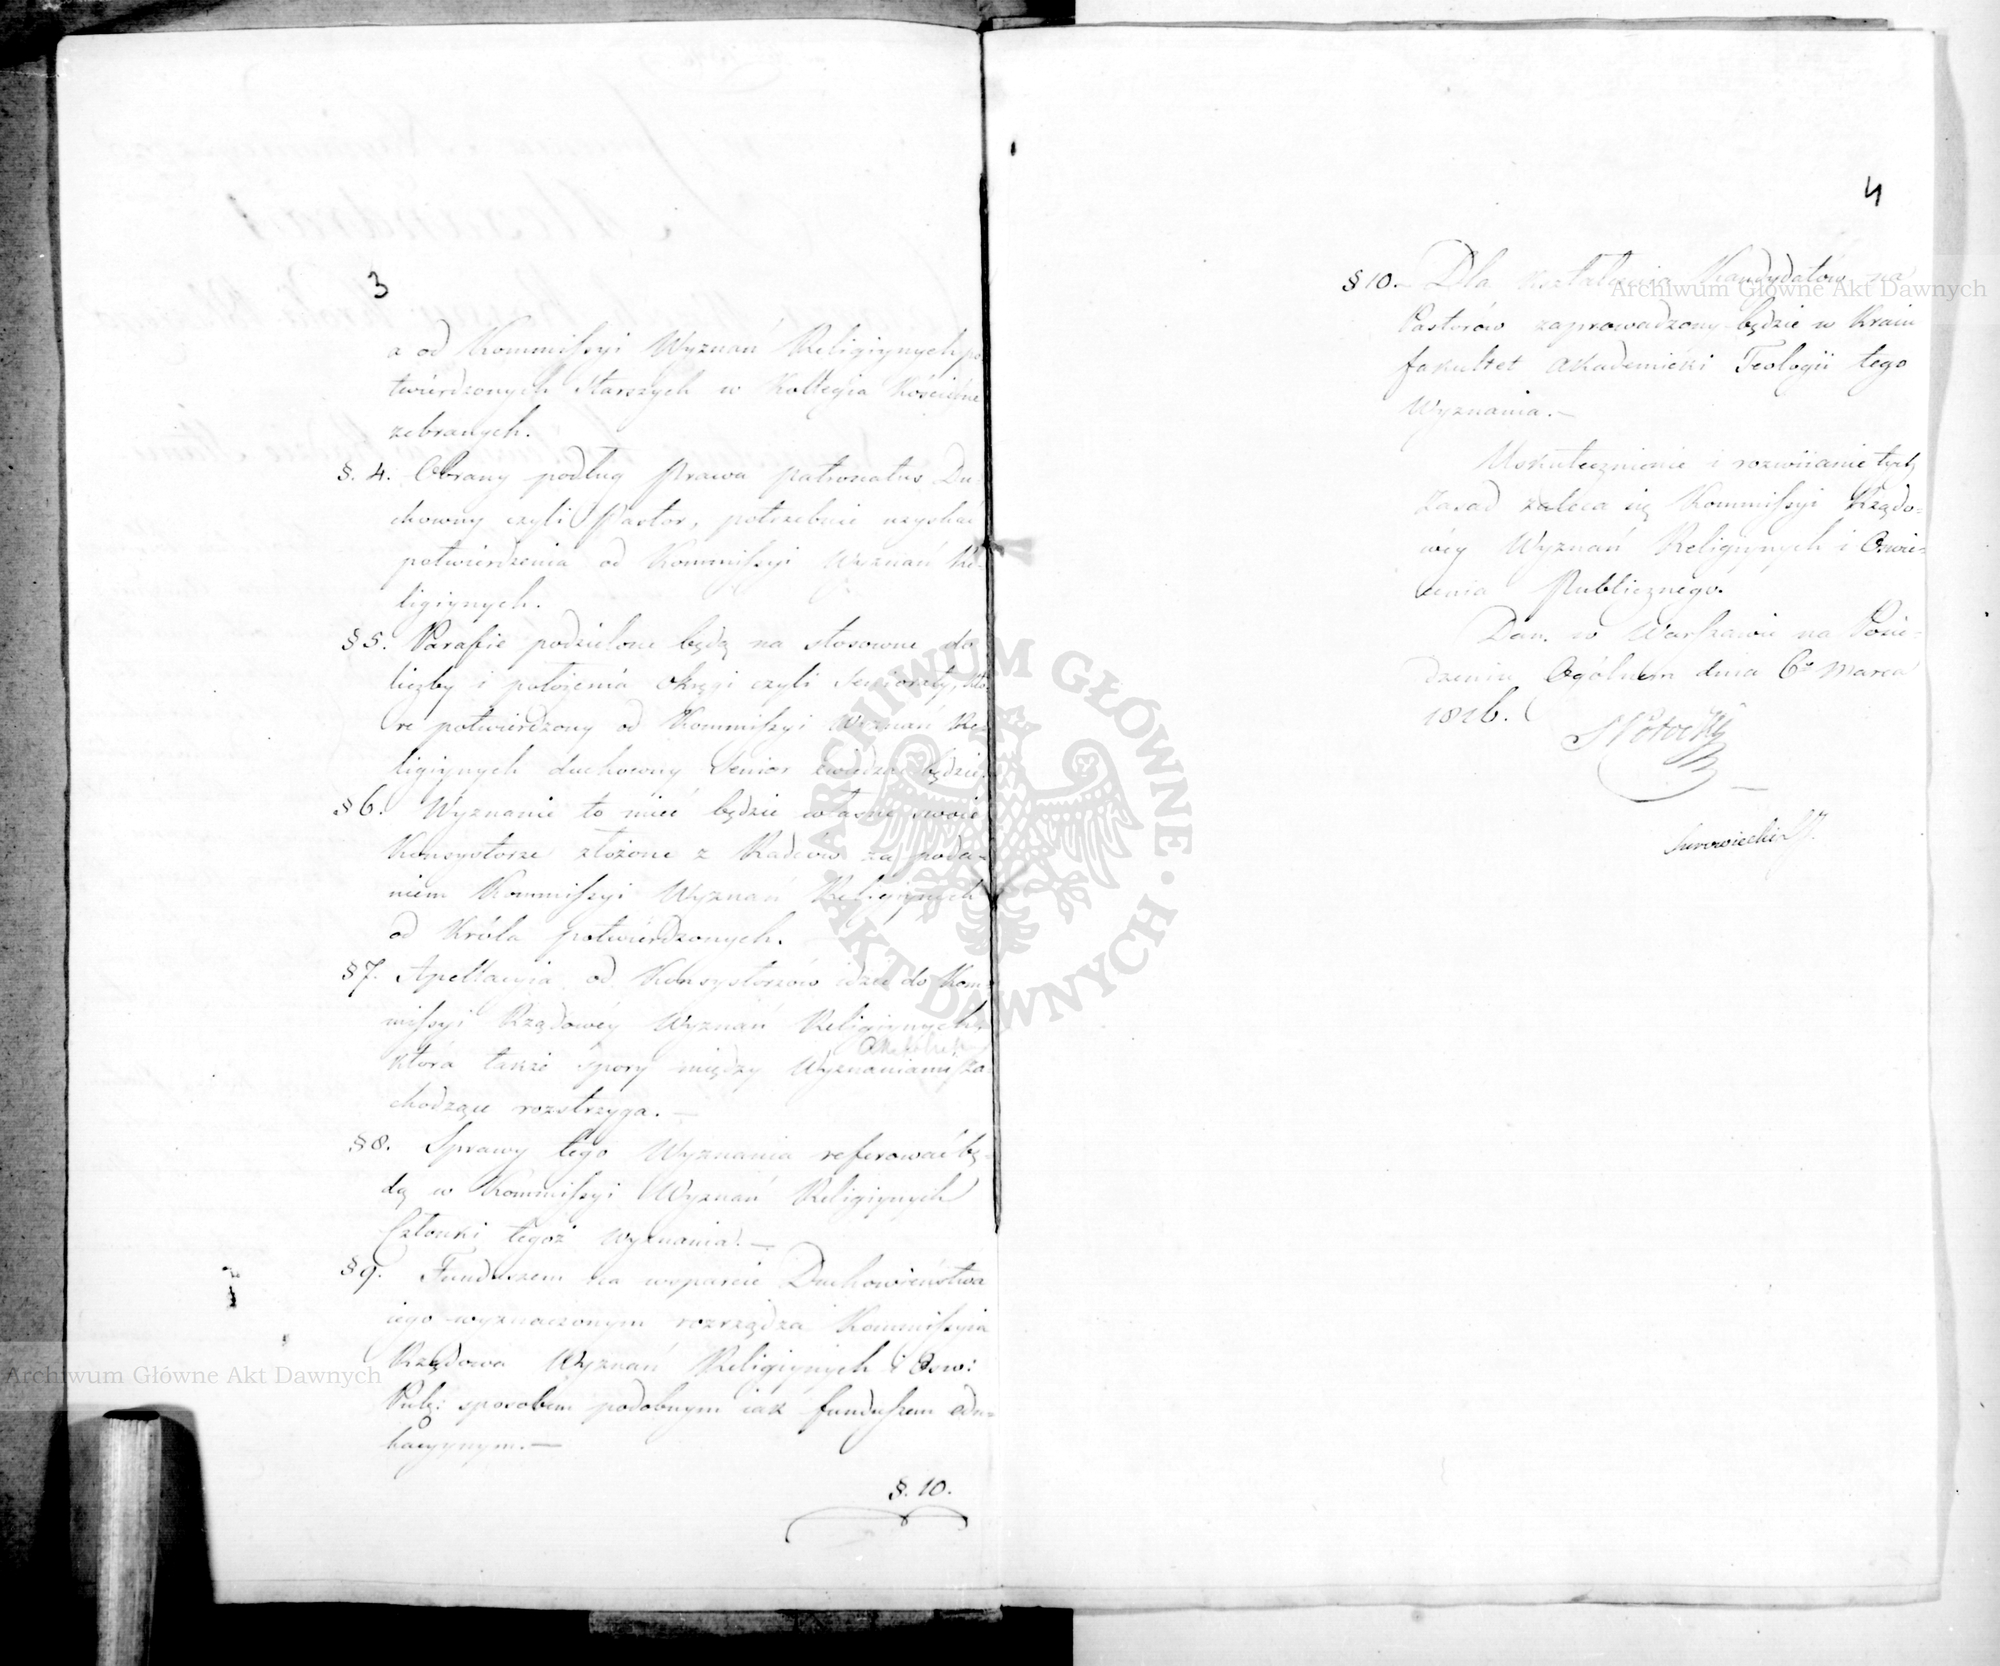 3
a od Kommissyi Wyznań Religiynych po
twierdzonych Starszych w Kollegia Kościelne
zebranych.
§. 4. Obrany podług Prawa patronatus Du-
chowny czyli Pastor, potrzebuie uzyskać
potwierdzenia od Kommissyi Wyznań Re-
ligiynych.
§ 5. Parafie podzielone będą na stosowne do
liczby i położenia okręgi czyli Senioraty, któ-
re potwierdzony od Kommissyi Wyznań Re-
ligiynych duchowny Senior zwiedzać będzie.
§ 6. Wyznanie to mieć będzie własne swoie
Konsystorze złożone z Radców za poda-
niem Kommissyi Wyznań Religiynych
od Króla potwierdzonych.
§ 7. Apellacyia od Konsystorzów idzie do Kom-
missyi Rządowéy Wyznań Religiynych
która także spory między Wyznaniami za-
chodzące rozstrzyga. —
§ 8. Sprawy tego Wyznania referować bę-
dą w Kommissyi Wyznań Religiynych
Członki tegoż Wyznania. —
§ 9. Funduszem na wsparcie Duchowieństwa
iego wyznaczonym rozrządza Kommissyia
Rządowa Wyznań Religiynych i Osw:
Pub: sposobem podobnym iak funduszem edu-
kacyynym. —
§. 10.
4
§ 10. Dla kształcenia Kandydatów na
Pastorów zaprowadzony będzie w Kraiu
fakultet akademicki Teologii tego
Wyznania. —
Uskutecznienie i rozwiianie tych
zasad zaleca się Kommissyi Rządo-
wéy Wyznań Religiynych i Oswie-
cenia Publicznego.
Dan. w Warszawie na Posie-
dzeniu Ogólnem dnia 6º Marca
1816.
S Potocki
Surowiecki
Archiwum Główne Akt Dawnych
Archiwum Główne Akt Dawnych
ARCHIWUM GŁÓWNE · AKT DAWNYCH ·